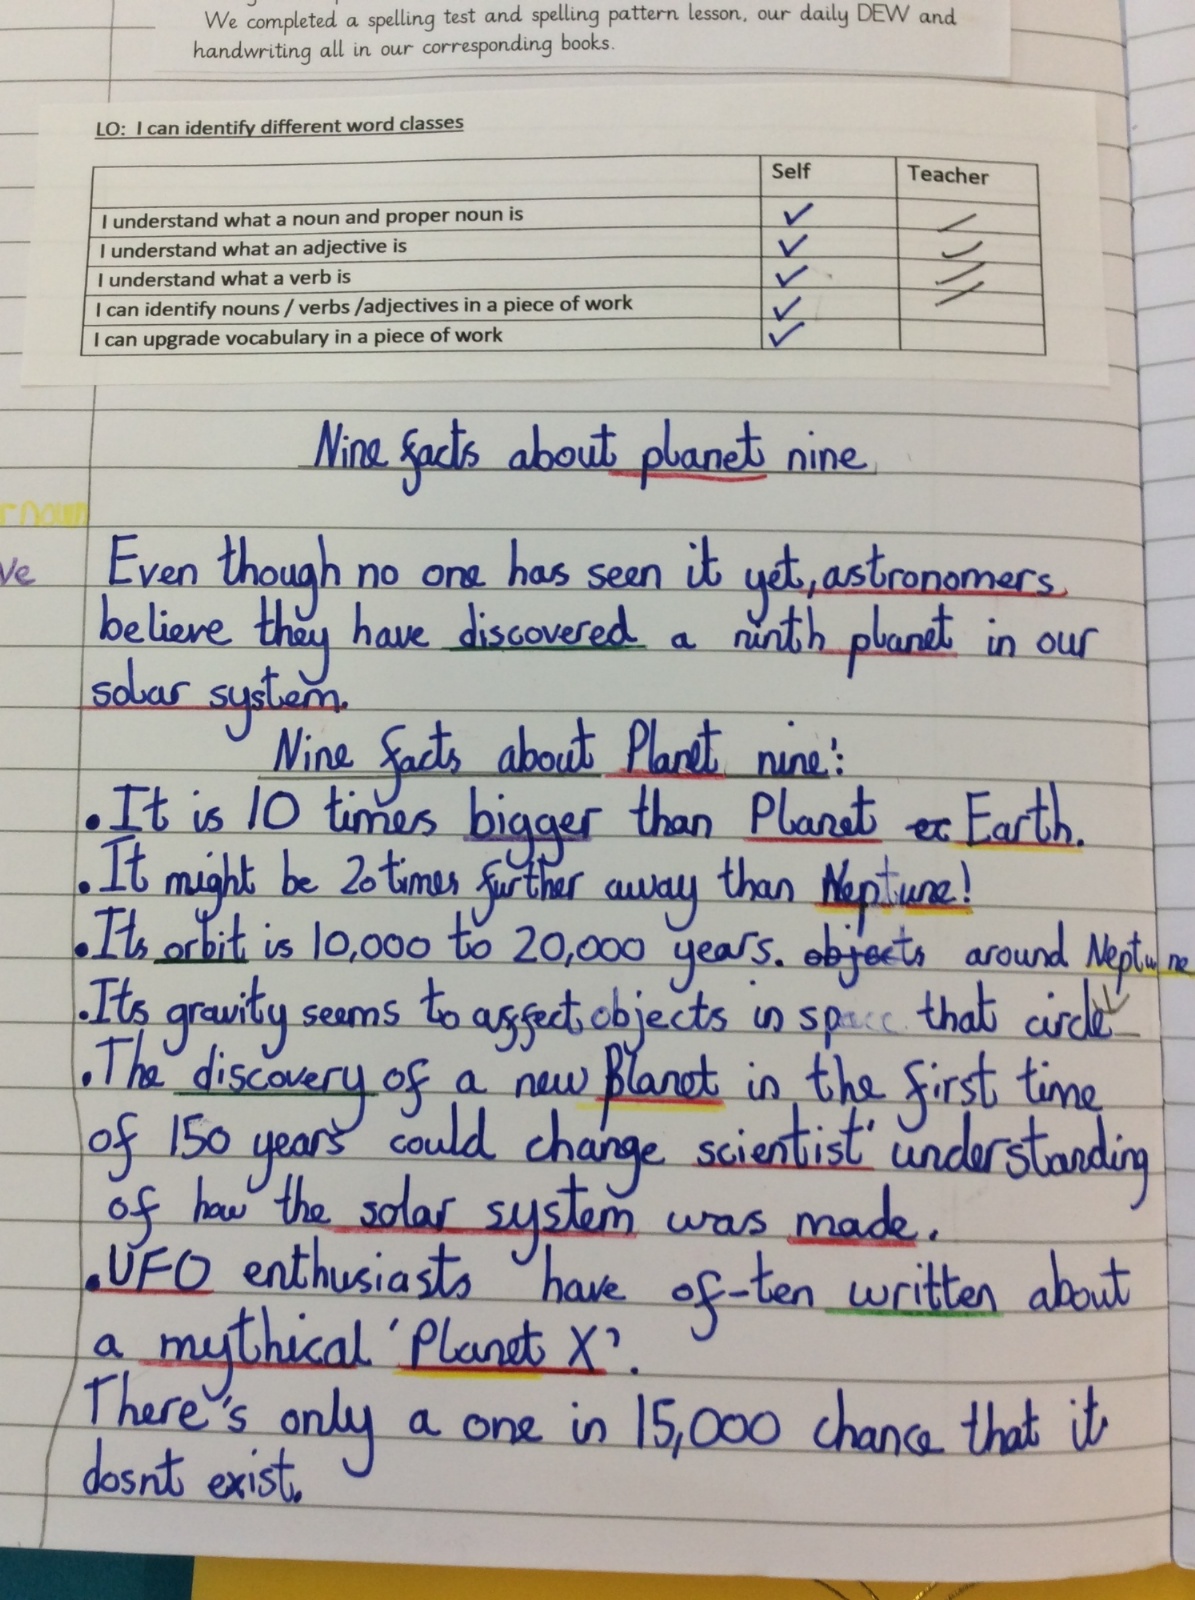 We completed a spelling test and spelling pattern lesson, our daily DEW and
handwriting all in our corresponding books.
LO: I can identify different word classes
Self Teacher
I understand what a noun and proper noun is
I understand what an adjective is
I understand what a verb is
I can identify nouns / verbs /adjectives in a piece of work
I can upgrade vocabulary in a piece of work
Nine facts about planet nine
noun
ve
Even though no one has seen it yet, astronomers
believe they have discovered a ninth planet in our
solar system.
Nine facts about Planet nine:
. It is 10 times bigger than Planet Earth.
. It might be 20 times further away than Neptune!
. Its orbit is 10,000 to 20,000 years. objects around Neptune
. Its gravity seems to affect objects in space that circle
. The discovery of a new Planet in the first time
of 150 years could change scientist' understanding
of how the solar system was made.
. UFO enthusiasts have of-ten written about
a mythical 'Planet X'.
There's only a one in 15,000 chance that it
dosnt exist.